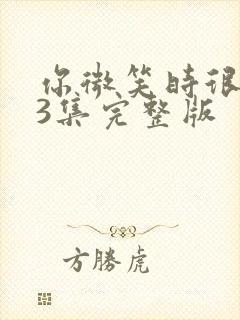 你微笑时很
3集完整版
方勝虎